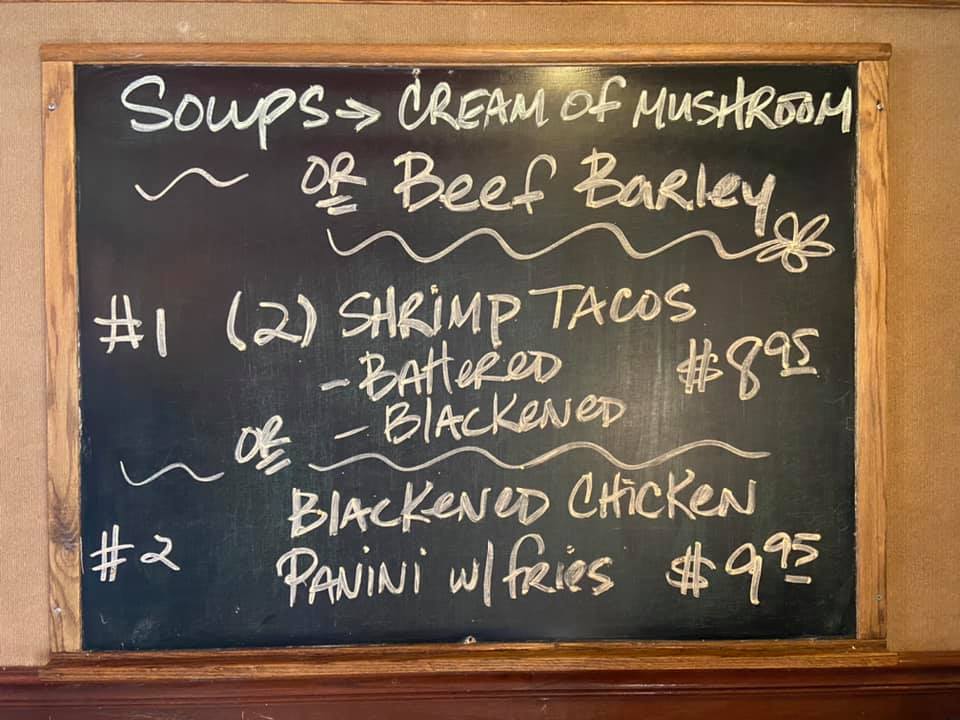 Soups → CREAM OF MUSHROOM
OR Beef Barley
#1 (2) SHRIMP TACOS
- BATTERED $8 95
OR - BLACKENED
BLACKENED CHICKEN
#2 PANINI w/ fries $9 95